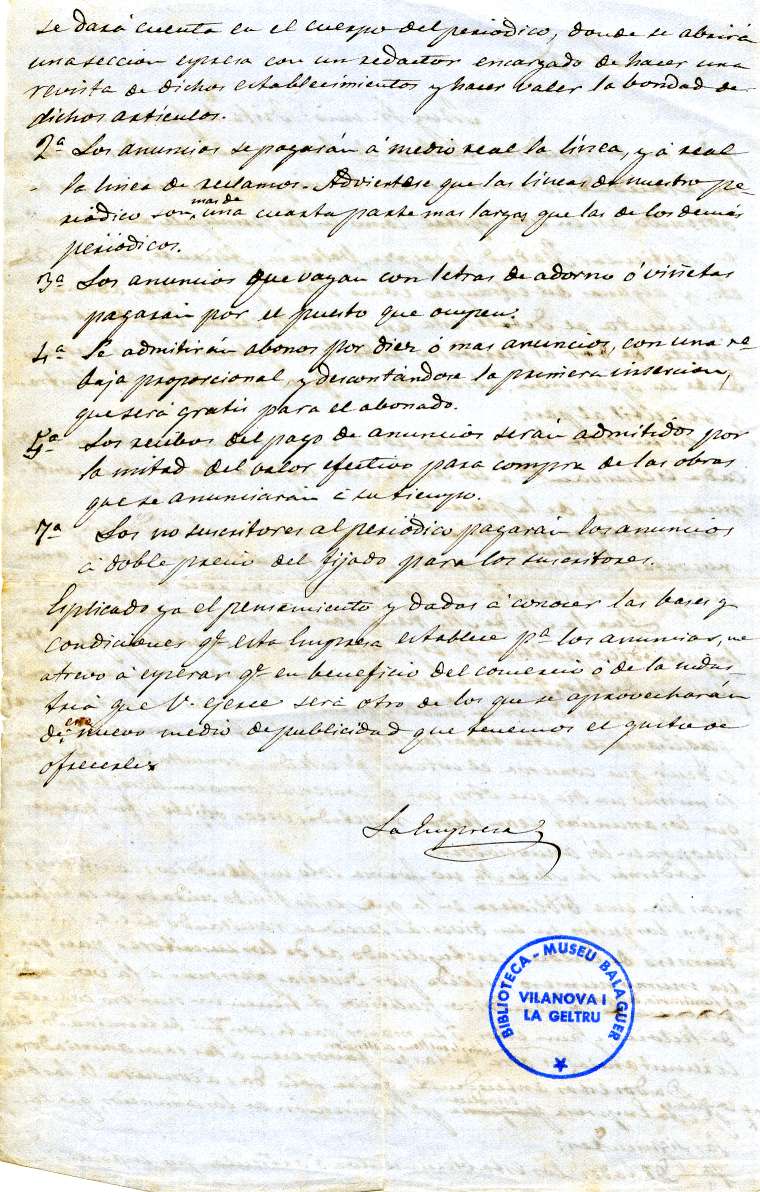 se dará cuenta en el cuerpo del periódico, donde se abrirá
una seccion espresa con un redactor encargado de hacer una
revista de dichos establecimientos y hacer valer la bondad de
dichos artículos.
2ª Los anuncios se pagarán á medio real la línea, y á real
la linea de reclamos. Adviertese que las líneas de nuestro pe-
riódico son mas de una cuarta parte mas largas que las de los demás
periódicos.
3ª Los anuncios que vayan con letras de adorno ó viñetas
pagarán por el puesto que ocupen.
4ª Se admitirán abonos por diez ó mas anuncios, con una re-
baja proporcional, y descontándose la primera insercion,
que será gratis para el abonado.
5ª Los recibos del pago de anuncios serán admitidos por
la mitad del valor efectivo para compra de las obras
que se anunciarán á su tiempo.
7ª Los no suscritores al periódico pagarán los anuncios
á doble precio del fijado para los suscritores.
Esplicado ya el pensamiento y dadas á conocer las bases y
condiciones qe. esta Empresa establece pª los anunciar, me
atrevo á esperar qe. en beneficio del comercio ó de la indus
tria que V. ejerce será otro de los que se aprovecharán
de este nuevo medio de publicidad que tenemos el gusto de
ofrecerle.
La Empresa
BIBLIOTECA - MUSEU BALAGUER
VILANOVA I
LA GELTRU